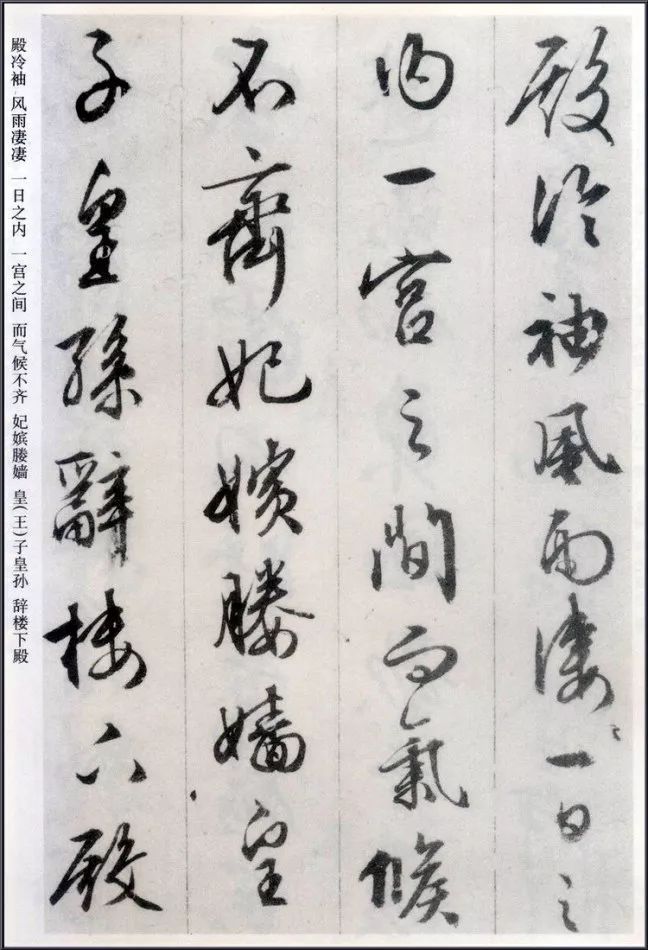 殿冷袖風雨凄〻一日之
内一宮之間而氣候
不齊妃嬪媵嬙皇
子皇孫辭楼下殿
殿冷袖 风雨凄凄 一日之内 一宫之间 而气候不齐 妃嫔媵嫱 皇(王)子皇孙 辞楼下殿